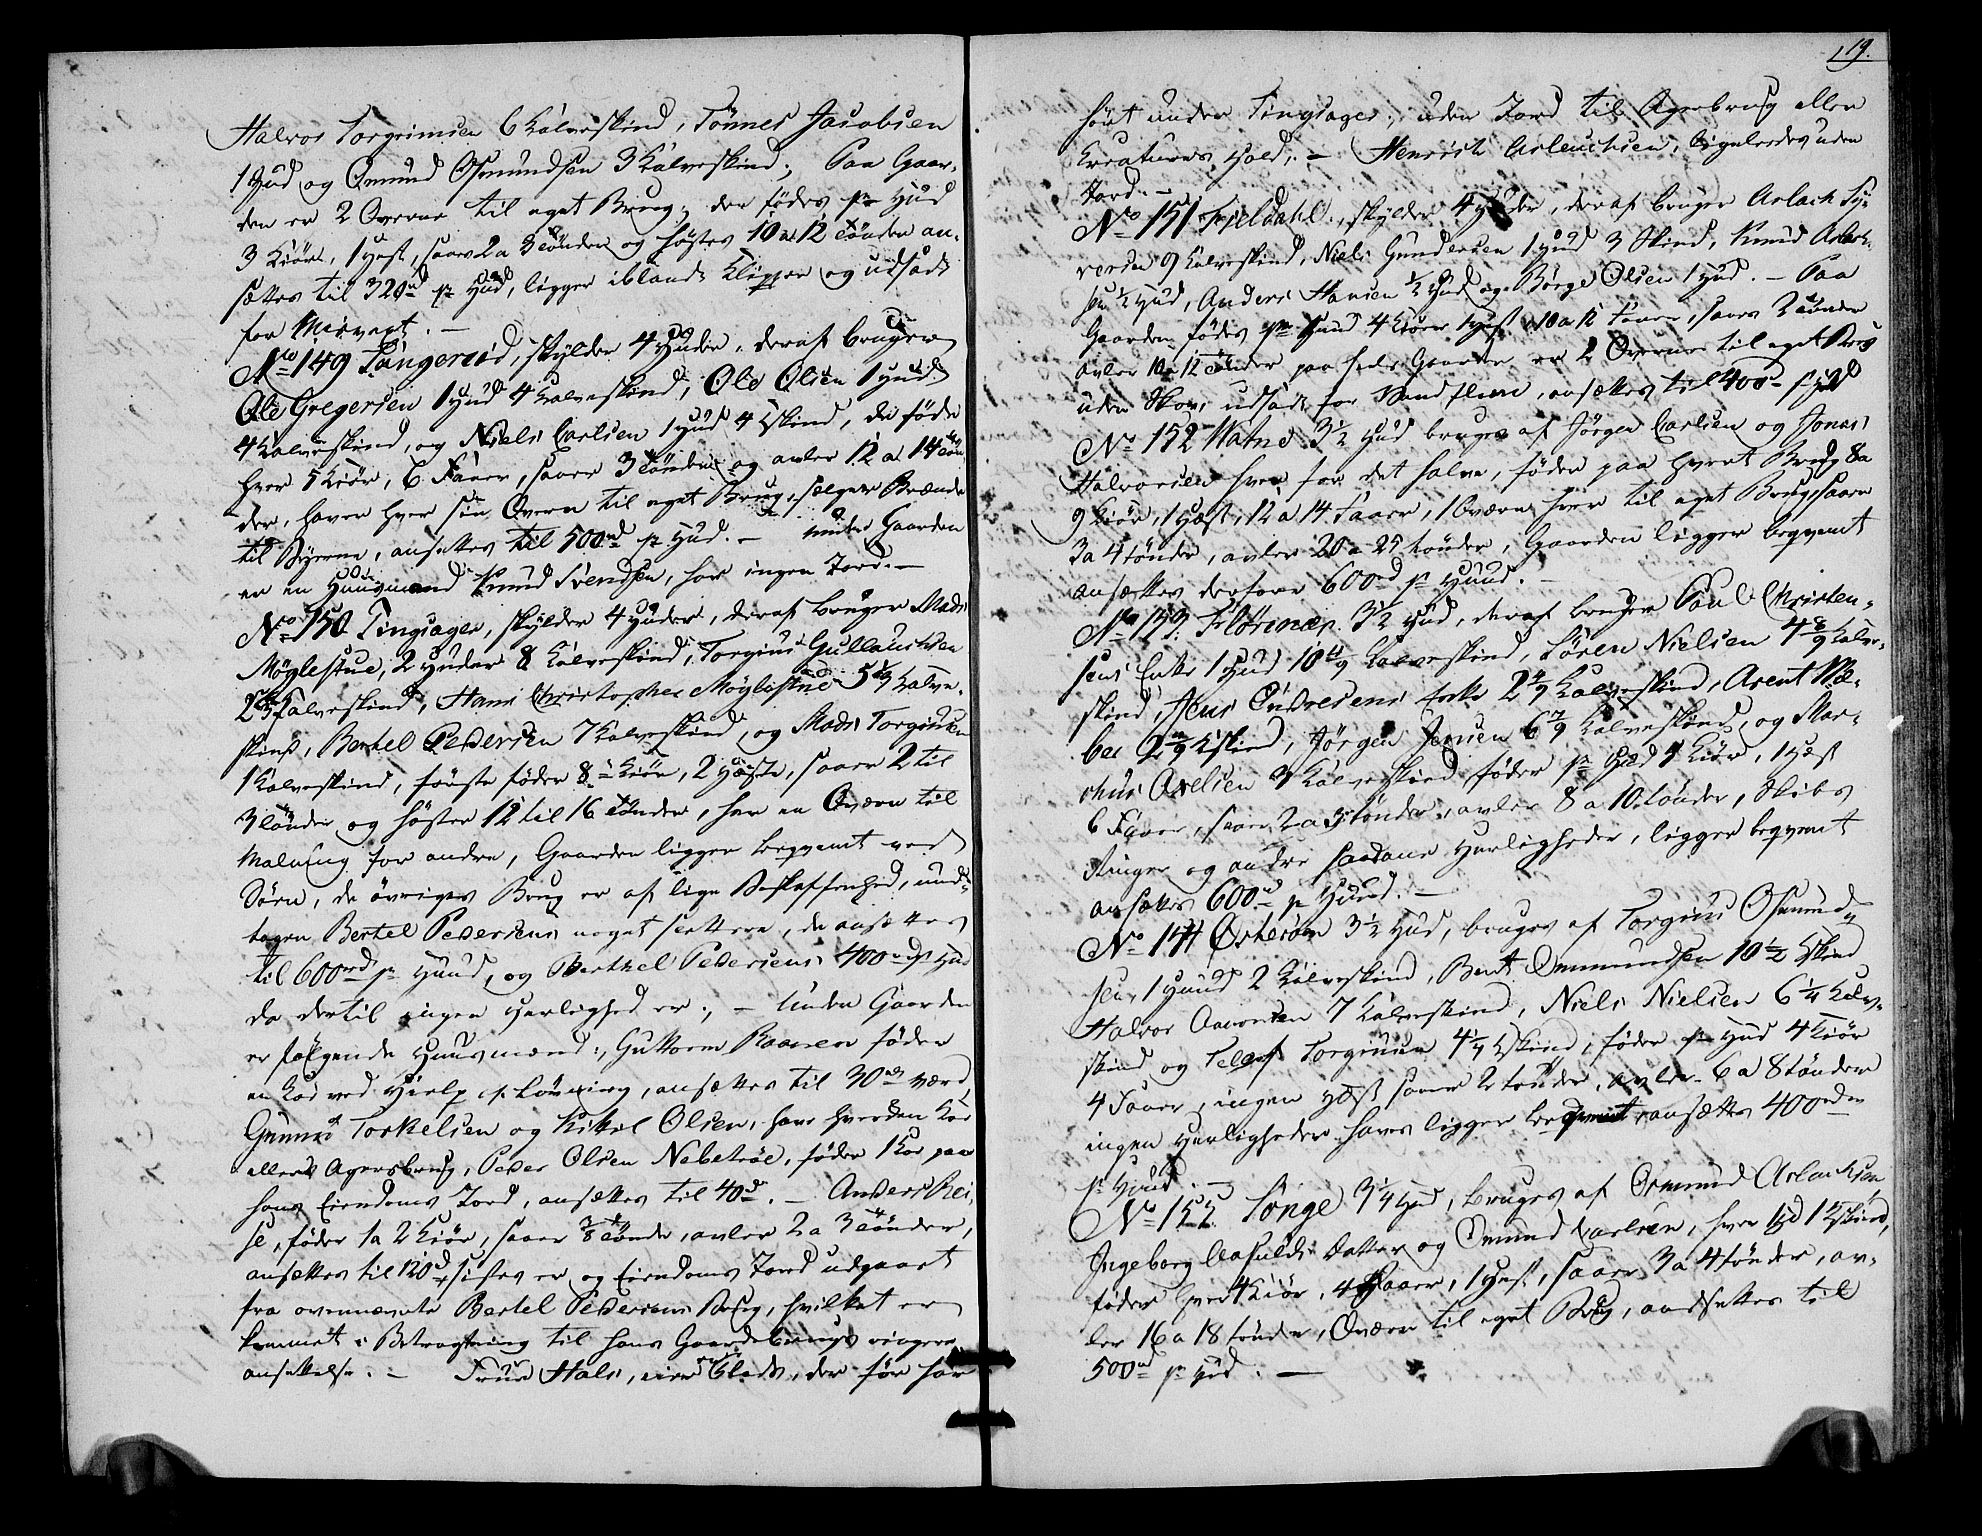 Halvor Torgrimsen 6 Kalveskind, Tönnes Jacobsen
1 Hud og Omund Osmundsen 3 Kalveskind; Paa Gaar-
den er 2 Qverne til eget Brug; der födes pr Hud
3 Kiör, 1 Hest, saaes 2 a 3 Tönder og höstes 10 a 12 Tönder an-
sættes til 320rd pr Hud, ligger iblandt Klipper og udsadt
for Misvext. —
No 149 Tangeröd, skylder 4 Huder, deraf bruger
Ole Gregersen 1 Hud 4 Kalveskind, Ole Olsen 1 Hud
4 Kalveskind, og Niels Carlsen 1 Hud 4 Kskind, de föder
hver 5 Kiör, 6 Faarer, saaer 3 Tönder og avler 12 a 14 Tön-
der, haver hver sin Qvern til eget Brug, sælger Brænde
til Byerne, ansettes til 500rd pr Hud. — under Gaarden
er en Huusmand Knud Svendsen, har ingen Jord. —
No 150 Tingsager, skylder 4 Huder, deraf bruger Mads
Möglestue, 2 Huder 8 Kalveskind, Torgius Gullachsen
Kalveskind, Hans Christopher Möglestue Kalve-
skind, Berthel Pedersen 7 Kalveskind, og Mads Torgiusen
1 Kalveskind, förste föder 8 Kiör, 2 Heste, saaer 2 til
3 Tönder og höster 12 til 16 Tönder, har en Qværn til
Malning for andre, Gaarden ligger beqvemt ved
Söen, de övriges Brug er af lige Beskaffenhed, und-
tagen Bertel Pedersens noget slettere, de ansættes
til 600rd pr Huud, og Berthel Pedersens 400rd pr Hud
da dertil ingen Herlighed er; — Under Gaarden
er fölgende Huusmænd:, Guttorm Raanen föder
en Koe ved Hielp af Lövning, ansættes til 30rd værd,
Gunner Torkelsen og Kittil Olsen, have hverken Koe
eller Agerbrug, Peder Olsen Nebetröe, föder 1 Koe paa
hans Eiendoms Jord, ansættes til 40rd. — Anders Rei-
se, föder 1 a 2 Kiör, saaer 3/8 Tönde, avler 2 a 3 Tönder,
ansættes til 120rd, sidste er og Eiendoms Jord udgaaet
fra ovennævnte Bertel Pedersens Brug, hvilket er
kommet i Betragtning til hans Gaardebrugs ringere
ansettelse. — Truls Hals, eier Gields, der för har
19.
höet under Tingsager; uden Jord til Agerbrug eller
Creaturers Hold; — Henrich Asleuchsen, ligeledes uden
Jord. —
No 151 Fieldahl, skylder 4 Huder, deraf bruger Aslach Sy-
versen 9 Kalveskind, Niels Gundersen 1 Hud 3 Skind, Knud Aslach-
sen ½ Hud, Anders Hansen ½ Hud og Börge Olsen 1 Hud. — Paa
Gaarden födes pr Huud 4 Kiöer 1 Hest 10 a 12 Faarer, saaes 2 Tönder
avler 10 a 12 Tönder paa hele Gaarden er 2 Qverne til eget Brug
uden Skov, udsadt for Vandflom, ansættes til 400rd pr Hud
No 152 Vatne 3½ Hud bruges af Jörgen Carlsen og Jonas
Halvorsen hver for det halve, föder paa hvert Brug 8 a
9 Kiör, 1 Hest, 12 a 14 Faarer, 1 Qværn hver til eget Brug, saaer
3 a 4 tönder, avler 20 a 25 tönder, Gaarden ligger beqvemt
ansættes derfore 600rd pr Huud. —
No 153 Flörenæs 3½ Hud, deraf bruger Poul Christen-
sens Enke 1 Hud 10 Kalveskind, Sören Nielsen 4 Kalve-
skind, Jens Endresens Enke 2 4/9 Kalveskind, Arent We-
ber 2 Kskind, Jörgen Jensen 6 7/9 Kalveskind, og Mar-
chus Axelsen 3 Kalveskind, föder pr Hud 4 Kiör, 1 Hest
6 Faarer, saaer 2 a 3 tönder, avler 8 a 10 tönder, Skibs
Ringer og andre saadane Herligheder, ligger beqvemt
ansættes 600rd pr Huud. —
No 154 Österöen 3½ Hud, bruges af Torgius Osmund-
sen, 1 Huud 2 Kalveskind, Bent Ommundsen 10½ Kskind
Halvor Aanonsen 7 Kalveskind, Niels Nielsen 6¼ Kalve-
skind og Tellef Torgiusen 4¼ Kskind, föder pr Hud 4 Kiör
4 Faarer, ingen Hest saaer 2 tönder, avler 6 a 8 tönder
ingen Herligheder haves ligger beqvemt, ansættes 400rd
pr Huud. —
No 155 Songe 3¼ Hud, bruges af Ormund Aslachsen,
Ingeborg Aasulds Datter og Omund Carlsen, hver 1 Hd 1 Kskind,
föder hver 4 Kiör, 4 Faarer, 1 Hest, saaer 3 a 4 tönder, av-
ler 16 a 18 tönder, Qværn til eget Brug, andsettes til
500rd pr Hud. —